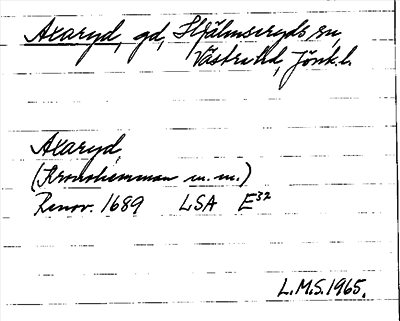 Axaryd, gd, Hjälmseryds sn,
Västra hd, Jönk. l.
Axaryd
(Kronohemman m.m.)
Renov. 1689 LSA E32
L.M.S. 1965.